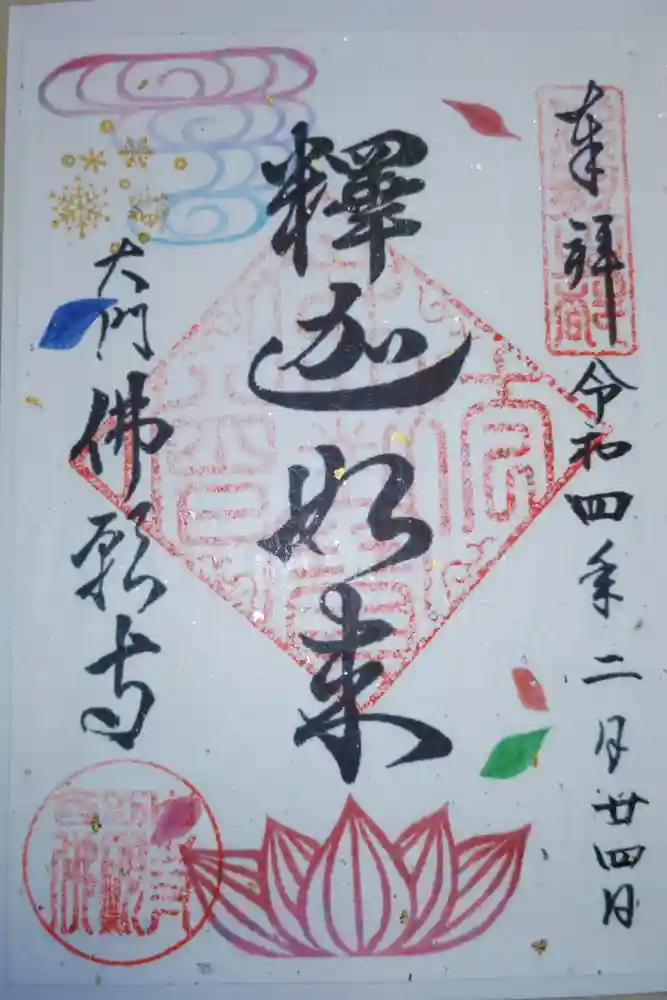 奉拝
令和四年二月廿四日
釋迦如来
大門
佛願寺